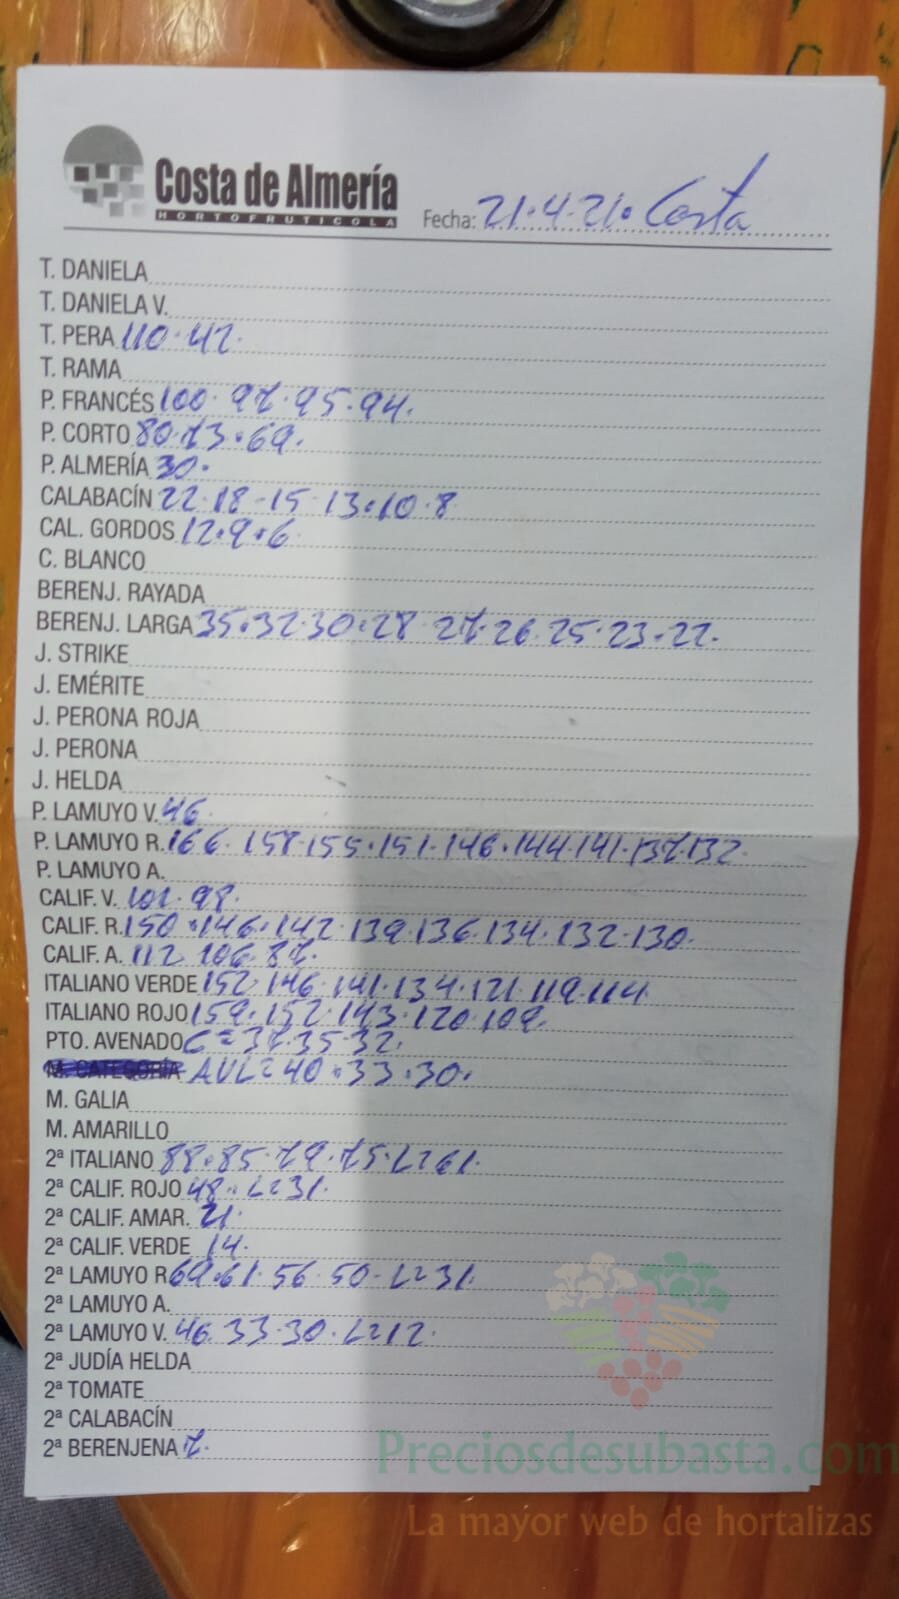 Costa de Almería
HORTOFRUTICOLA
Fecha: 21.4.21. Costa
T. DANIELA
T. DANIELA V.
T. PERA 110.42.
T. RAMA
P. FRANCÉS 100.97.95.94.
P. CORTO 80.73.69.
P. ALMERÍA 30.
CALABACÍN 22.18-15.13.10.8
CAL. GORDOS 12.9.6
C. BLANCO
BERENJ. RAYADA
BERENJ. LARGA 35.32.30.28 27.26.25.23.22.
J. STRIKE
J. EMÉRITE
J. PERONA ROJA
J. PERONA
J. HELDA
P. LAMUYO V. 46.
P. LAMUYO R. 166.158.155.151.146.144.141.137.132.
P. LAMUYO A.
CALIF. V. 101.98.
CALIF. R. 150.146.142.139.136.134.132.130.
CALIF. A. 112.106.87.
ITALIANO VERDE 152.146.141.134.121.119.114.
ITALIANO ROJO 159.152.143.120.109.
PTO. AVENADO C=37.35.32.
M. CATEGORÍA AVL=40.33.30.
M. GALIA
M. AMARILLO
2ª ITALIANO 88.85.79.75.L=61.
2ª CALIF. ROJO 48.L=31.
2ª CALIF. AMAR. 21.
2ª CALIF. VERDE 14.
2ª LAMUYO R 69.61.56.50-L=31.
2ª LAMUYO A.
2ª LAMUYO V. 46.33.30.L=12.
2ª JUDÍA HELDA
2ª TOMATE
2ª CALABACÍN
2ª BERENJENA 7.
Preciosdesubasta.com
La mayor web de hortalizas